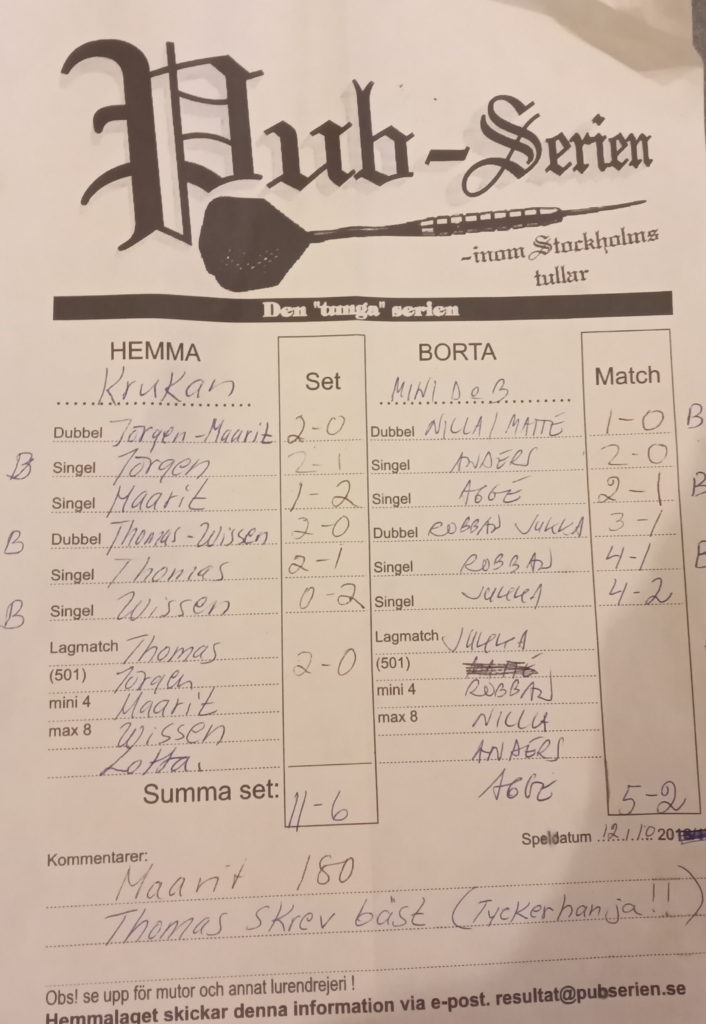 Pub-Serien
-inom Stockholms
tullar
Den "tunga" serien
HEMMA Set BORTA Match
Krukan MINI DoB
Dubbel Jörgen-Maarit 2-0 Dubbel NILLA/MATTE 1-0 B
B Singel Jörgen 2-1 Singel ANDERS 2-0
Singel Maarit 1-2 Singel AGGE 2-1 B
B Dubbel Thomas-Wissen 2-0 Dubbel ROBBAN JUKKA 3-1
Singel Thomas 2-1 Singel ROBBAN 4-1 B
B Singel Wissen 0-2 Singel JUKKA 4-2
Lagmatch Thomas 2-0 Lagmatch JUKKA
(501) Jörgen (501)
mini 4 Maarit mini 4 ROBBAN
max 8 Wissen max 8 NILLA
Lotta. ANDERS
Summa set: 11-6 AGGE 5-2
Speldatum 12.1.10 201
Kommentarer:
Maarit 180
Thomas skrev bäst (Tycker han ja!!)
Obs! se upp för mutor och annat lurendrejeri !
Hemmalaget skickar denna information via e-post. resultat@pubserien.se